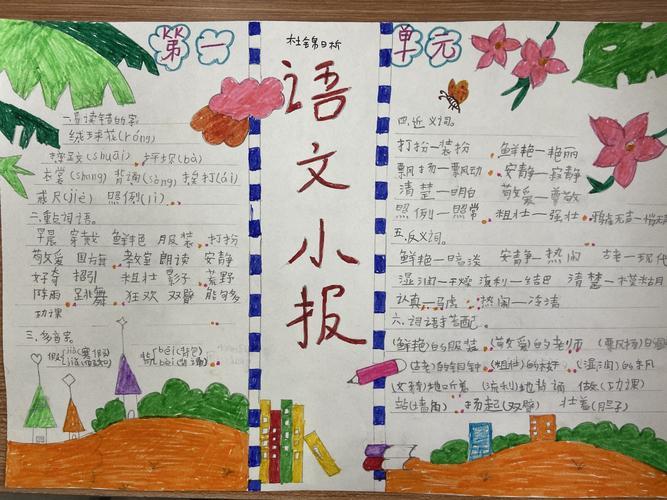 第一
一.易读错的字.
绒球花(róng)
摔跤(shuāi) 摔坏(bà)
衣裳(shang) 背诵(sòng) 挨打(ái)
戒尺(jiè) 照例(lì)
二.重点词语.
早晨 穿戴 鲜艳 服装 打扮
敬爱 国旗 教室 朗读 安静
好奇 招引 粗壮 影子 荒野
阵雨 跳舞 狂欢 双臂 能够多
功课
三.多音字.
假{jià(寒假) 背{bēi(背包)
bèi(背诵)
语文小报
单元
四.近义词.
打扮—装扮 鲜艳—艳丽
飘扬—飘动 安静—寂静
清楚—明白 敬爱—尊敬
照例—照常 粗壮—强壮
五.反义词.
鲜艳—暗淡 安静—热闹 古老—现代
湿润—干燥 流利—结巴 清楚—模糊
认真—马虎 热闹—冷清
六.词语搭配.
(鲜艳)的服装 (敬爱)的老师 (飘扬)
(古老)的铜钟 (粗壮)的枝干 (湿润)的
(安静)地听着 (流利)地背诵 做(功课)
站(墙角) 扬起(双臂)